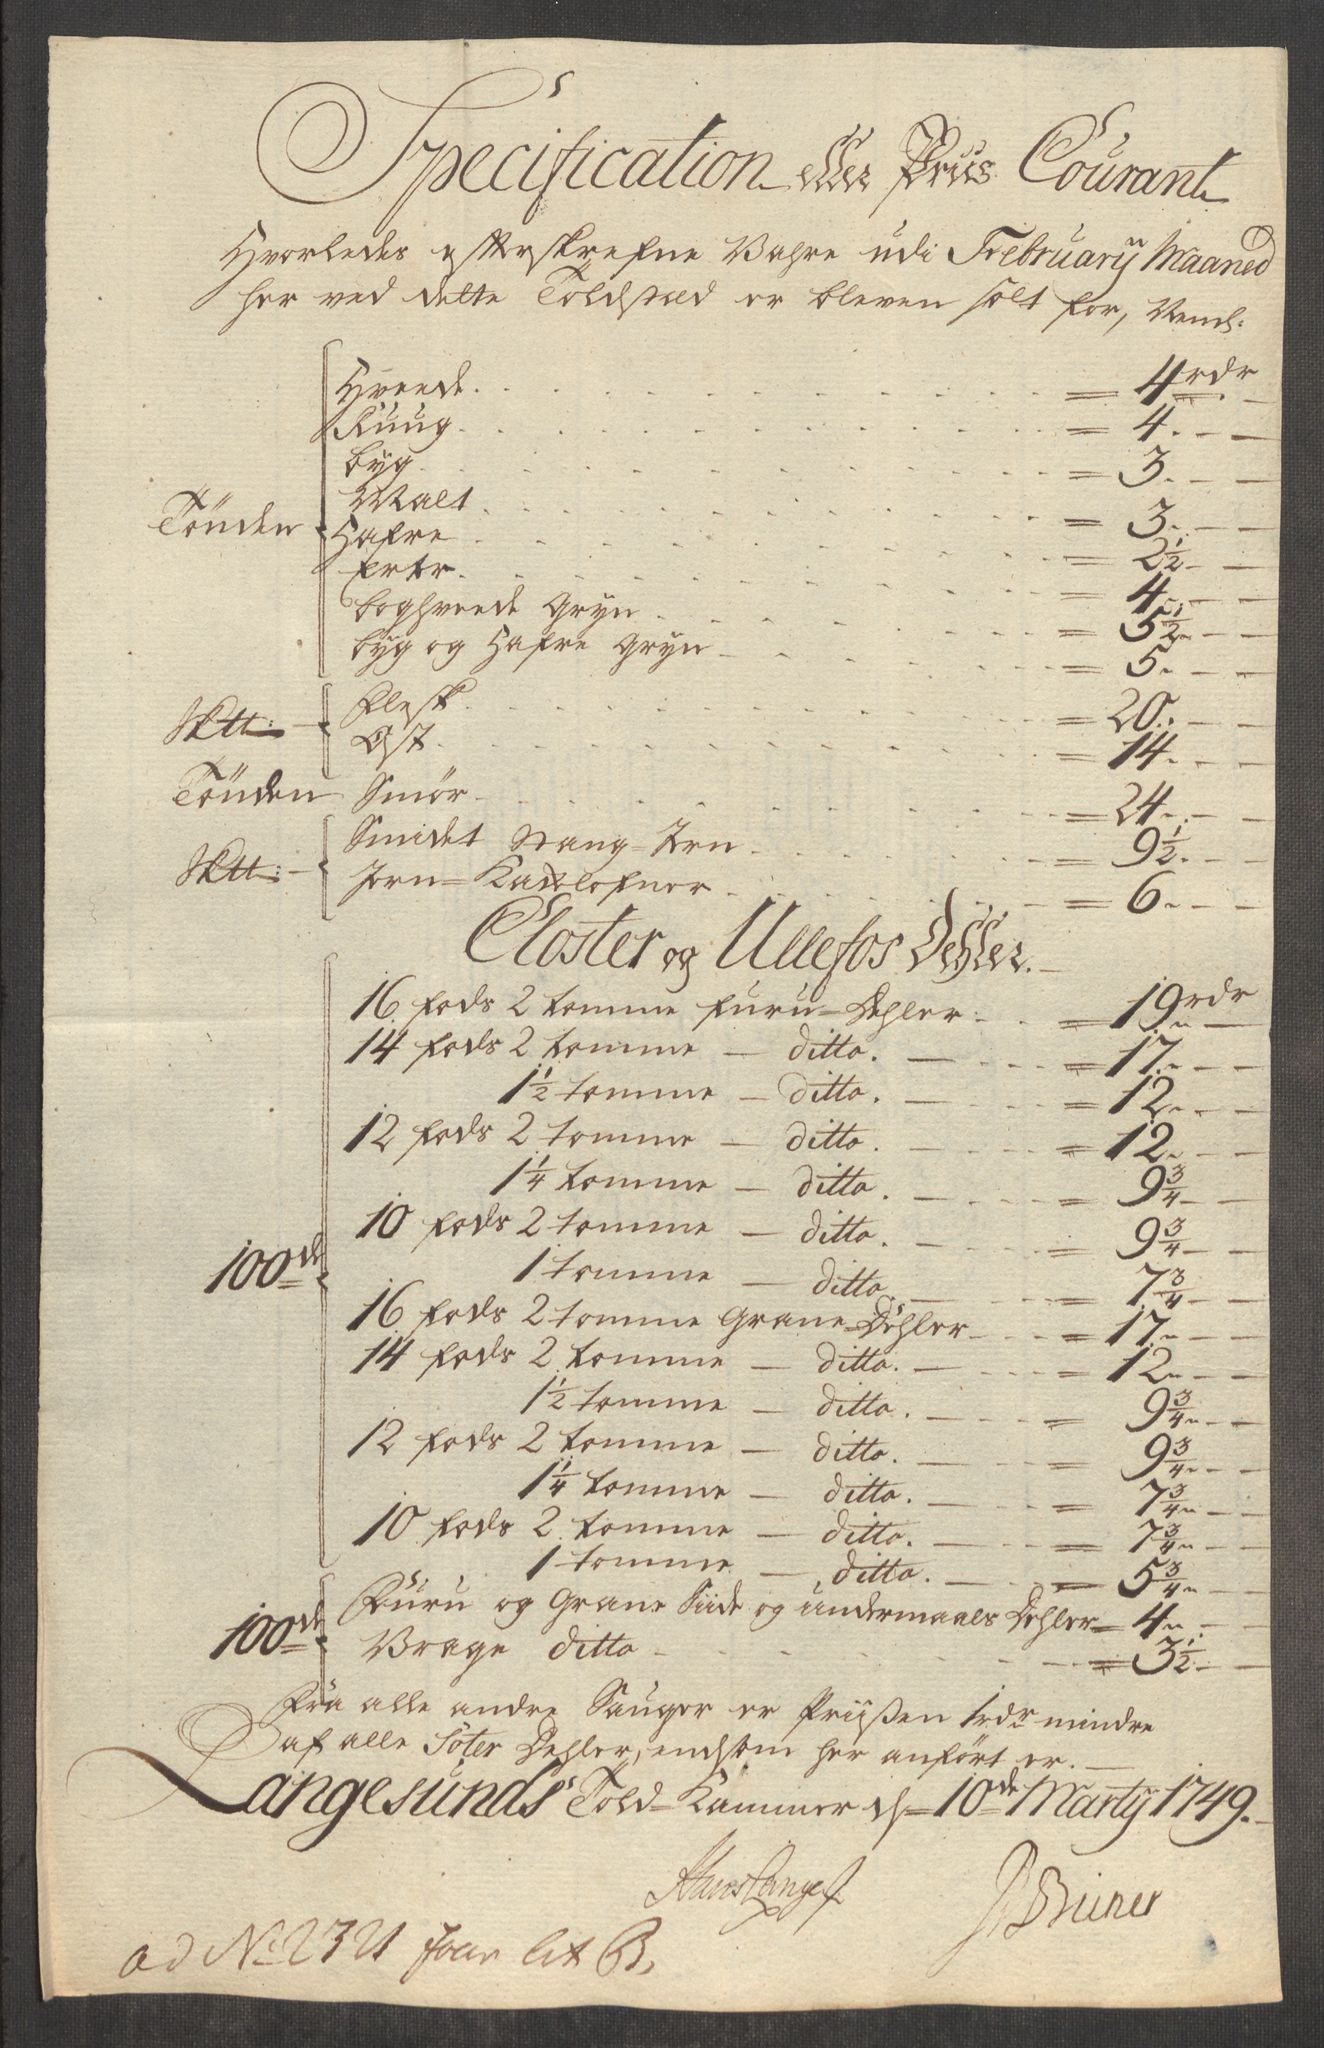 Specification eller Priis Courant
Hvorledes efterskrefne Vahre udi February Maaned
her ved dette Toldsted er bleven solt for, Neml:
Hvede = 4 rdr
Ruug = 4
byg = 3
Malt = 3
Tönden Hafre = 2 1/2
erter = 4
boghvede gryn = 5 1/2
byg og Hafre gryn = 5
Flesk = 20
Sk℔: Ost = 14
Tönden Smör = 24
Smidet Stang-Jern = 9 1/2
Sk℔: Jern-Kackelofner = 6
Closter og Ullefos Dehler
16 fods 2 tomme furu-Dehler = 19 rdr
14 fods 2 tomme — ditto = 17
1 1/2 tomme — ditto = 12
12 fods 2 tomme — ditto = 12
1 1/4 tomme — ditto = 9 3/4
10 fods 2 tomme — ditto = 9 3/4
100de 1 tomme — ditto = 7 3/4
16 fods 2 tomme Grane-Dehler = 17
14 fods 2 tomme — ditto = 12
1 1/2 tomme — ditto = 9 3/4
12 fods 2 tomme — ditto = 9 3/4
1 1/4 tomme — ditto = 7 3/4
10 fods 2 tomme — ditto = 7 3/4
1 tomme — ditto = 5 3/4
Furu og Grane Siide og undermaals Dehler = 4
100de Vrage ditto = 3 1/2
Fra alle andre Sauger er Priisen 1 rdr mindre
af alle Sorter Dehler, end som her anfört er.
Langesunds Told-Kammer d 10de Marty 1749.
Hans Lange
Büner
ad No 232 lit B.